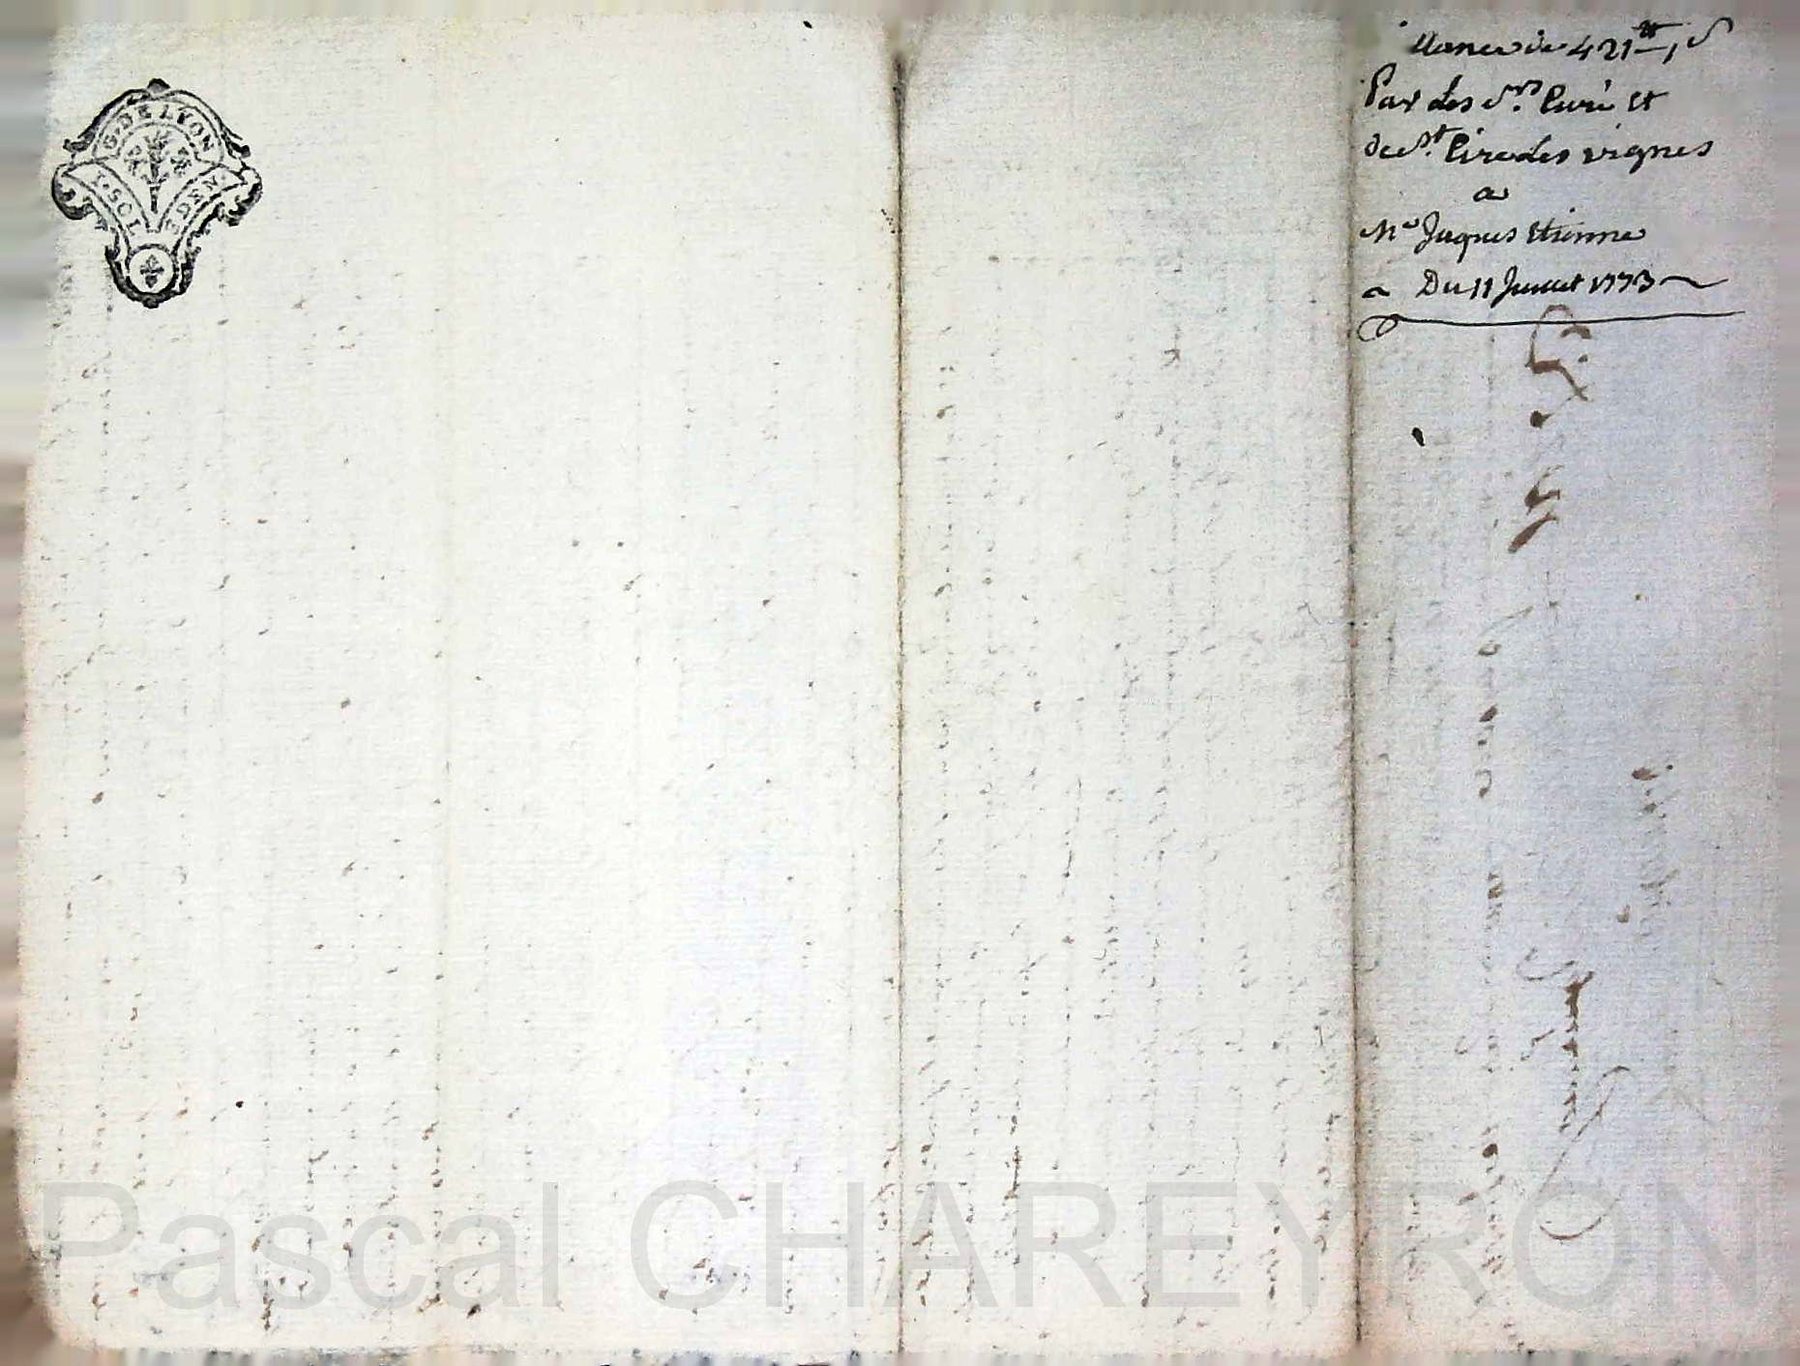 G. DE LYON
de 421 ₶ 1 s
Par les Srs. Curé et
de St. Cire les vignes
a
Me Jaques Etienne
Du 11 Juillet 1773
Pascal CHAREYRON